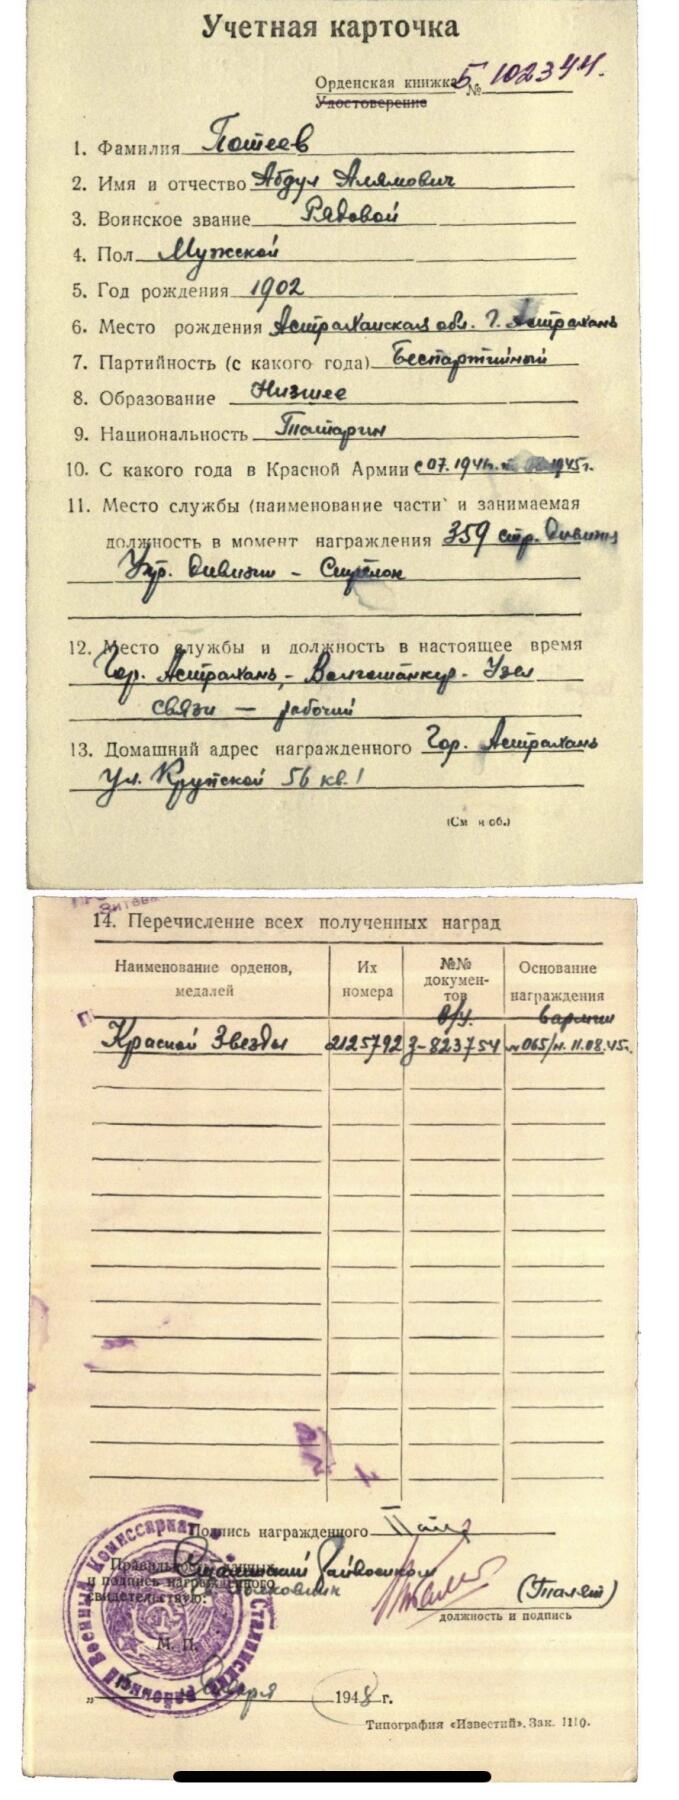 Учетная карточка
Орденская книжка № Б 102344.
Удостоверение
1. Фамилия Потеев
2. Имя и отчество Абдул Алямович
3. Воинское звание Рядовой
4. Пол Мужской
5. Год рождения 1902
6. Место рождения Астраханская обл. г. Астрахань
7. Партийность (с какого года) Беспартийный
8. Образование Низшее
9. Национальность Татарин
10. С какого года в Красной Армии с 07.1941г. 1945г.
11. Место службы (наименование части и занимаемая
должность в момент награждения 359 стр. дивизия
Упр. дивизии - Стрелок
12. Место службы и должность в настоящее время
Гор. Астрахань, - Волготанкер - Узел
связи — рабочий
13. Домашний адрес награжденного Гор. Астрахань
ул. Крупской 56 кв. 1
(См на об.)
14. Перечисление всех полученных наград
Наименование орденов, медалей
Их номера
№№ документов
Основание награждения
в/у. 6 армии
Красной Звезды 2125792 З-823754 №065/н. 11.08.45г.
Подпись награжденного
Правильность данных
и подпись награжденного
свидетельствую:
Сталинский Райвоенком
Полковник
(Талят)
должность и подпись
М. П.
Сталинский Районный Военный Комиссариат
1948 г.
Типография «Известий». Зак. 1110.